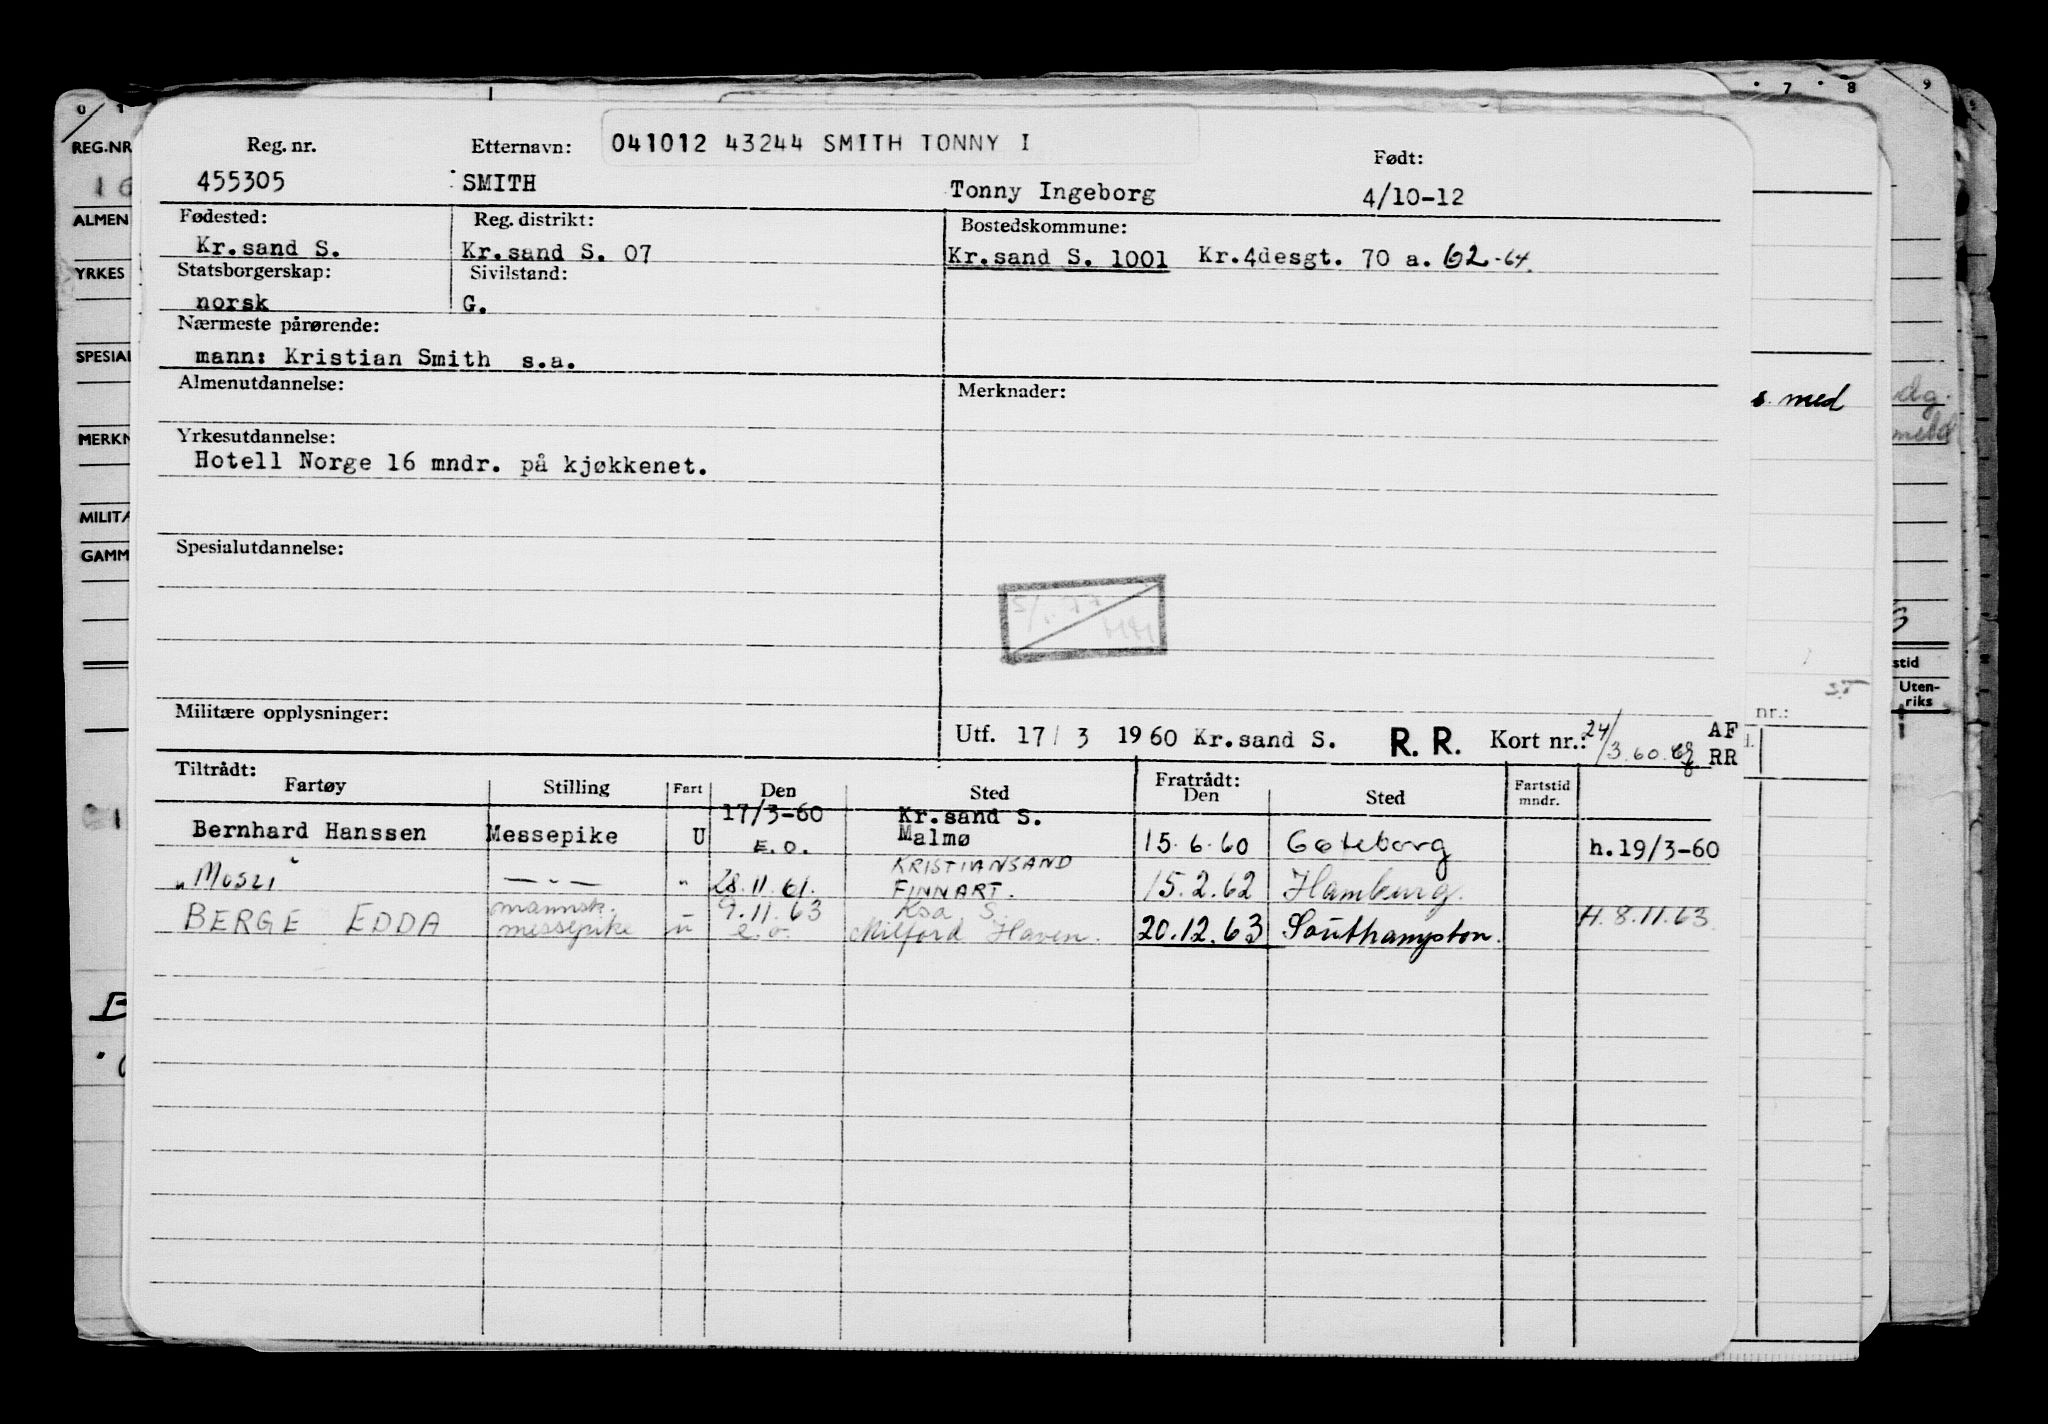 041012 43244 SMITH TONNY I
Reg. nr. Etternavn: Født:
455305 SMITH Tonny Ingeborg 4/10-12
Fødested: Reg. distrikt: Bostedskommune:
Kr.sand S. Kr.sand S. 07 Kr.sand S. 1001 Kr.4desgt. 70 a. 62-64.
Statsborgerskap: Sivilstand:
norsk G.
Nærmeste pårørende:
mann: Kristian Smith s.a.
Almenutdannelse: Merknader:
Yrkesutdannelse:
Hotell Norge 16 mndr. på kjøkkenet.
Spesialutdannelse:
Militære opplysninger:
Utf. 17/3 1960 Kr.sand S. R. R. Kort nr.: 24/3.60. AF RR
Tiltrådt: Fratrådt:
Fartøy Stilling Fart Den Sted Den Sted Fartstid mndr.
17/3-60 Kr.sand S.
Bernhard Hanssen Messepike U E.O. Malmø 15.6.60 Göteborg h.19/3-60
KRISTIANSAND
" Mosli —"— " 28.11.61. FINNART. 15.2.62 Hamburg.
mannsk. 9.11.63 Ksa S.
BERGE EDDA messepike u e.o. Milford Haven. 20.12.63 Southampton. H.8.11.63.
0 1
REG.NR
16
ALMEN
YRKES
SPESIAL
MERKN
MILITÆ
GAMM
7 8 9
s. med
nr.:
stid
Uten-
riks